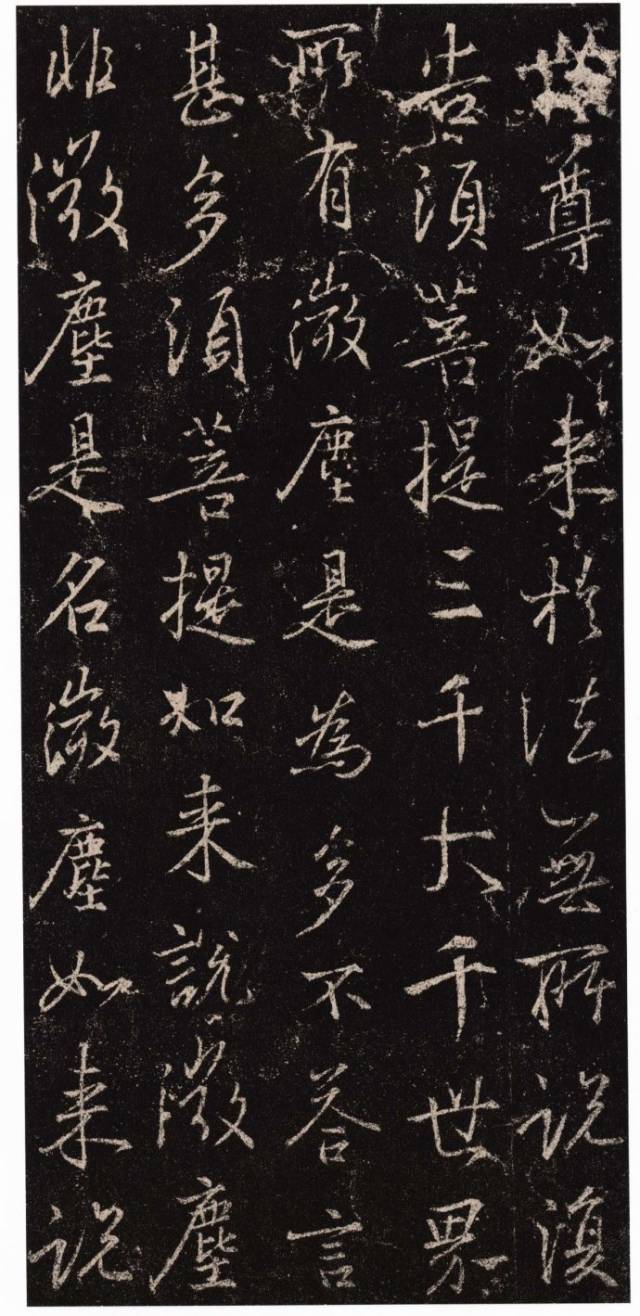 尊如來於法無所說復
告須菩提三千大千世界
所有微塵是為多不答言
甚多須菩提如來說微塵
非微塵是名微塵如來說